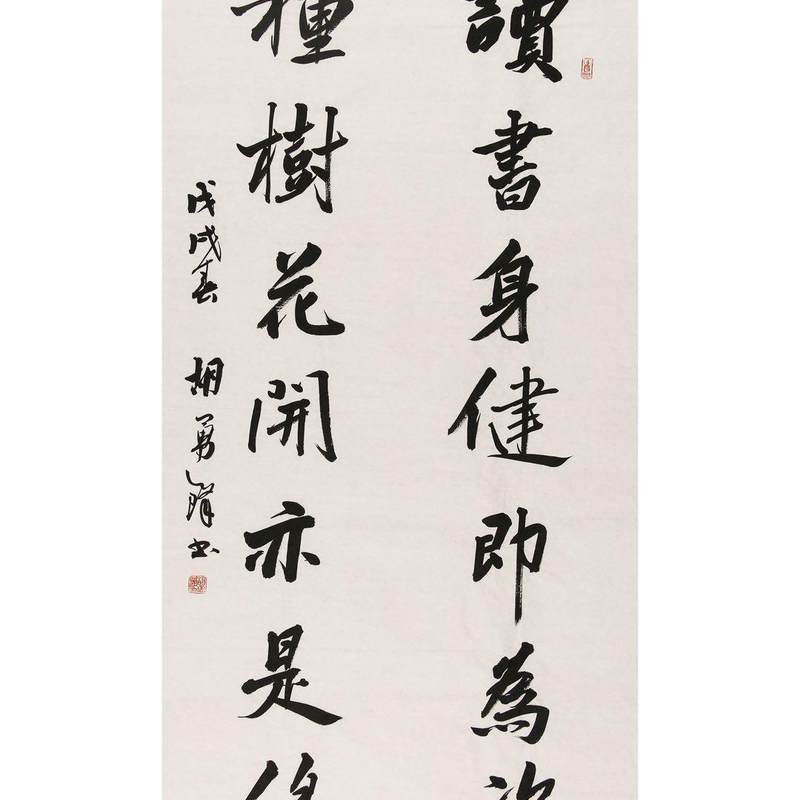 讀書身健即為
種樹花開亦是
戊戌春 胡勇
書